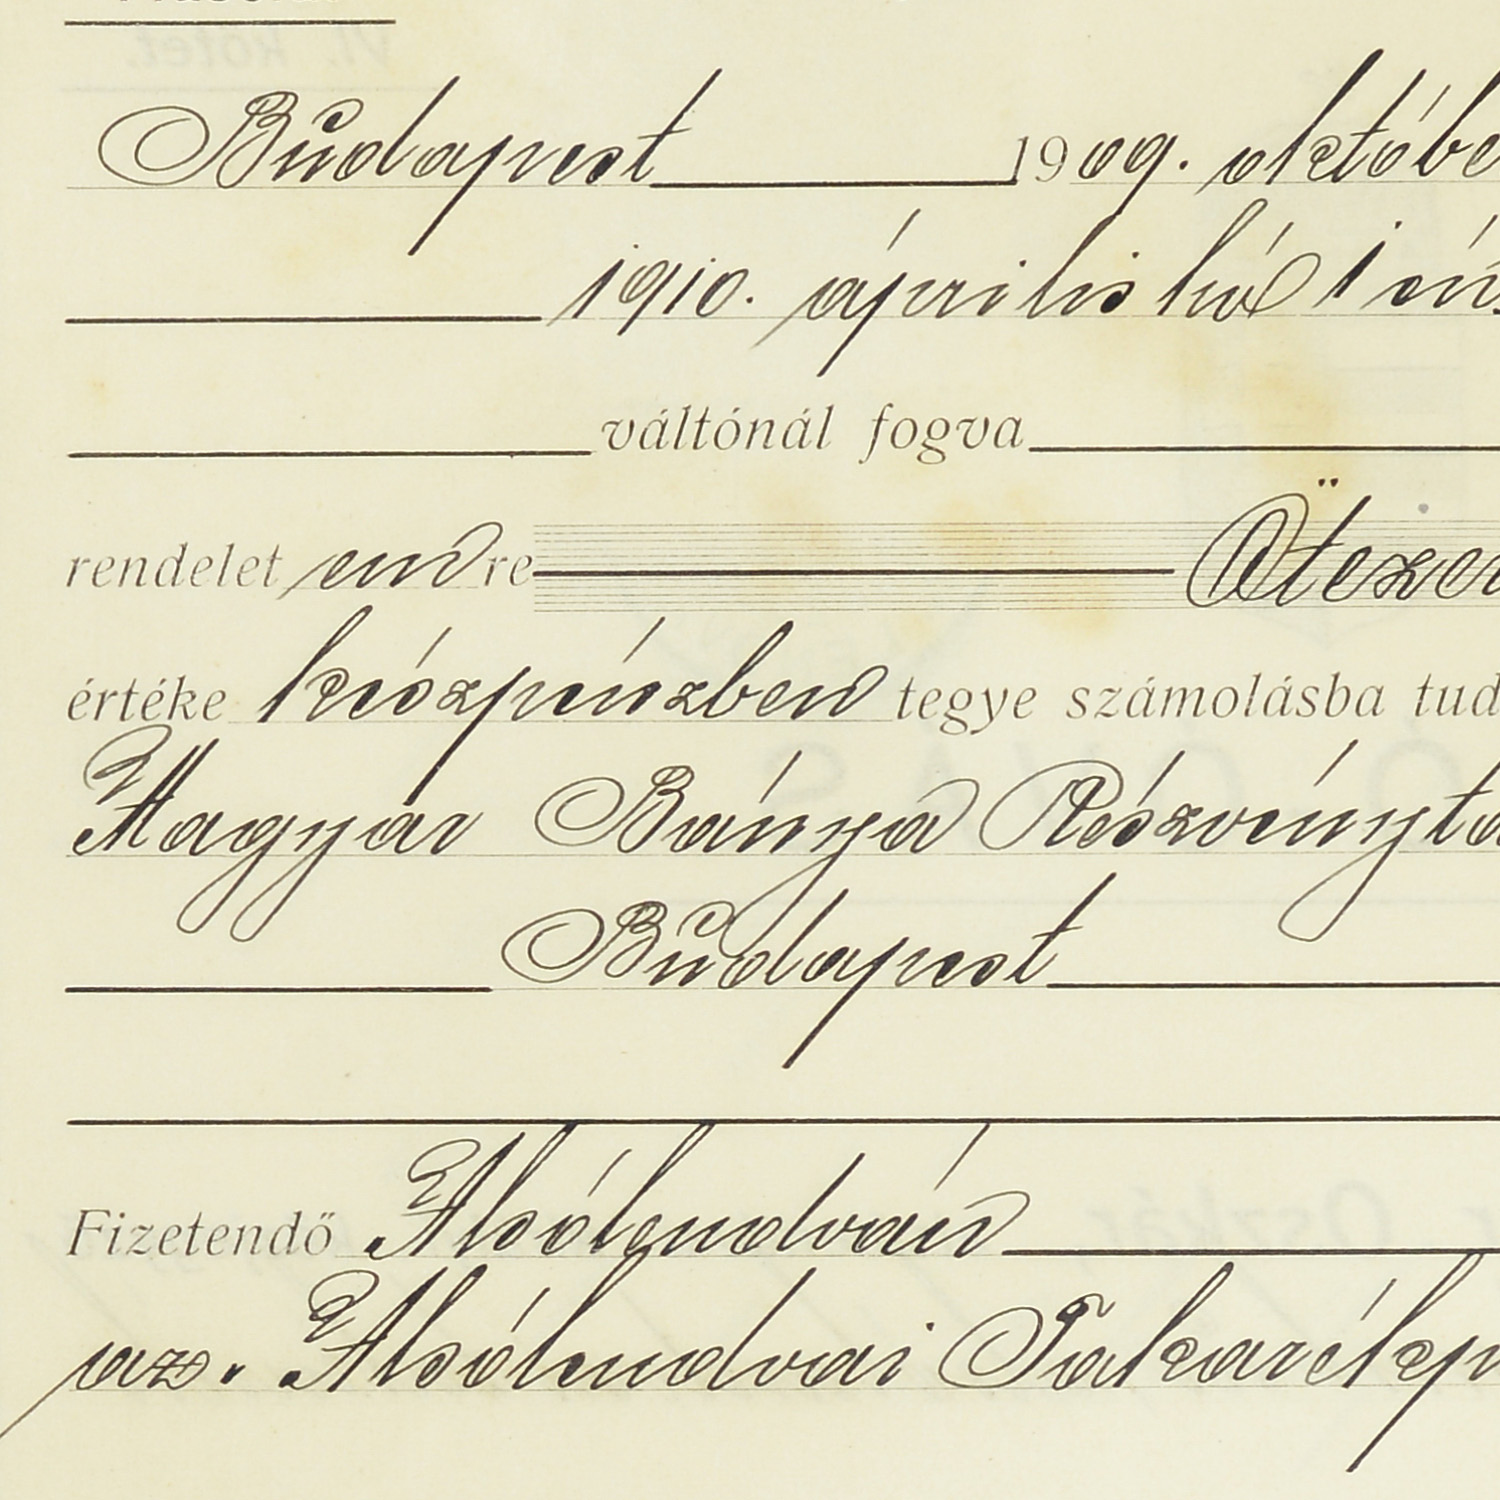 Budapest 1909. októbe
1910. április hó 1 én.
váltónál fogva
rendelet em re Ötezer
értéke készpénzben tegye számolásba tud
Magyar Bánya Részvénytá
Budapest
Fizetendő Alsólendván
az. Alsólendvai Takarékp